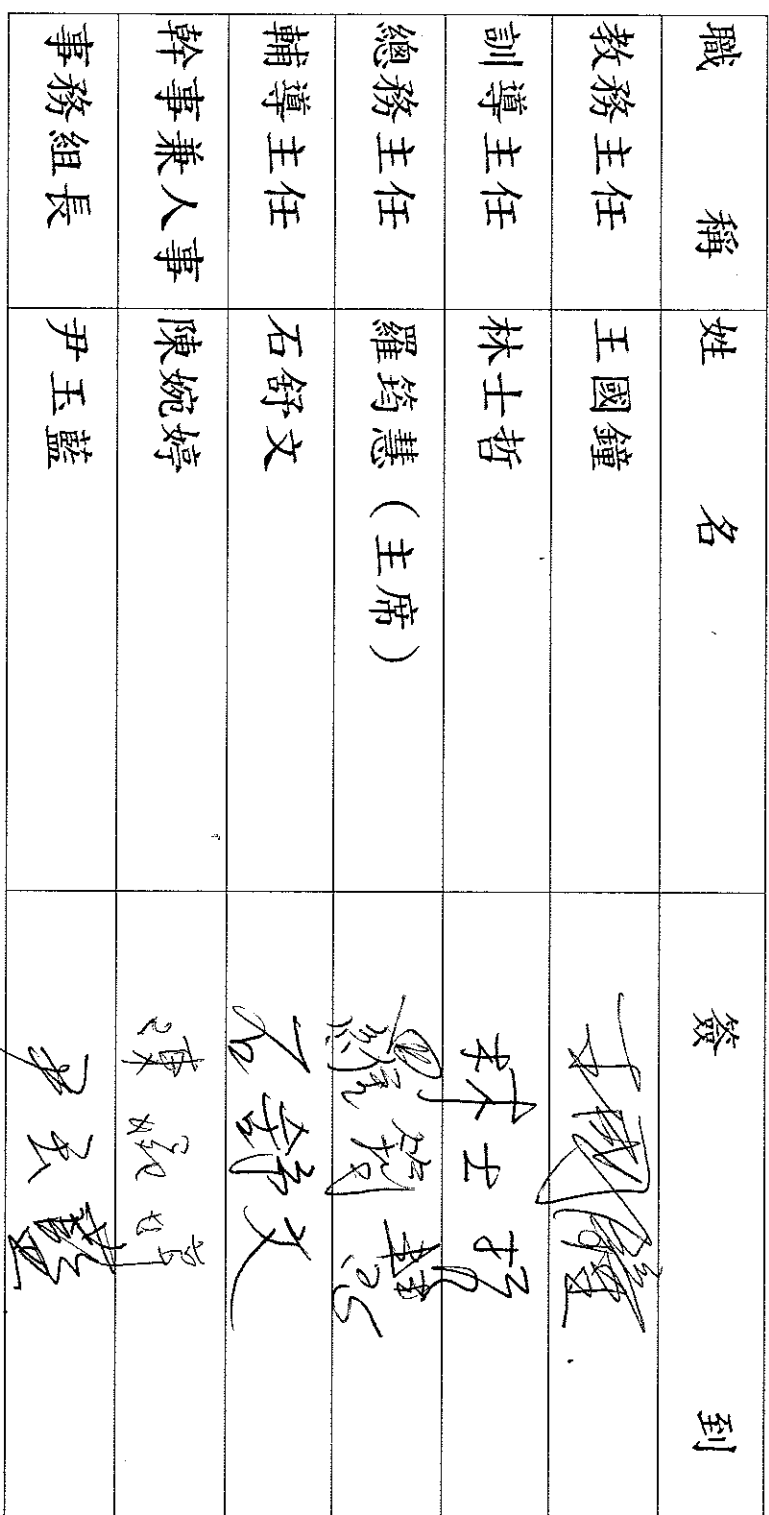 職稱 姓名 簽到
教務主任 王國鐘 王國鐘
訓導主任 林士哲 林士哲
總務主任 羅筠慧（主席） 羅筠慧
輔導主任 石舒文 石舒文
幹事兼人事 陳婉婷 陳婉婷
事務組長 尹玉藍 尹玉藍